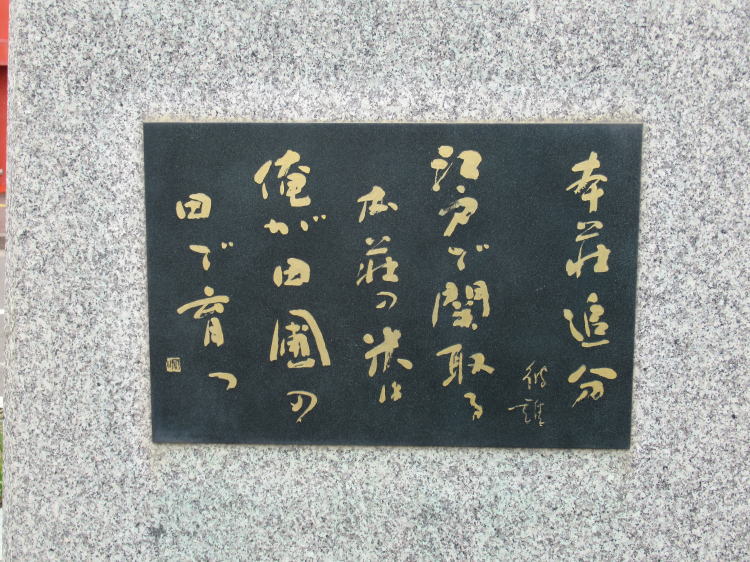 本荘追分
江戸で関取る
本荘の米は
俺が田圃の
田で育つ